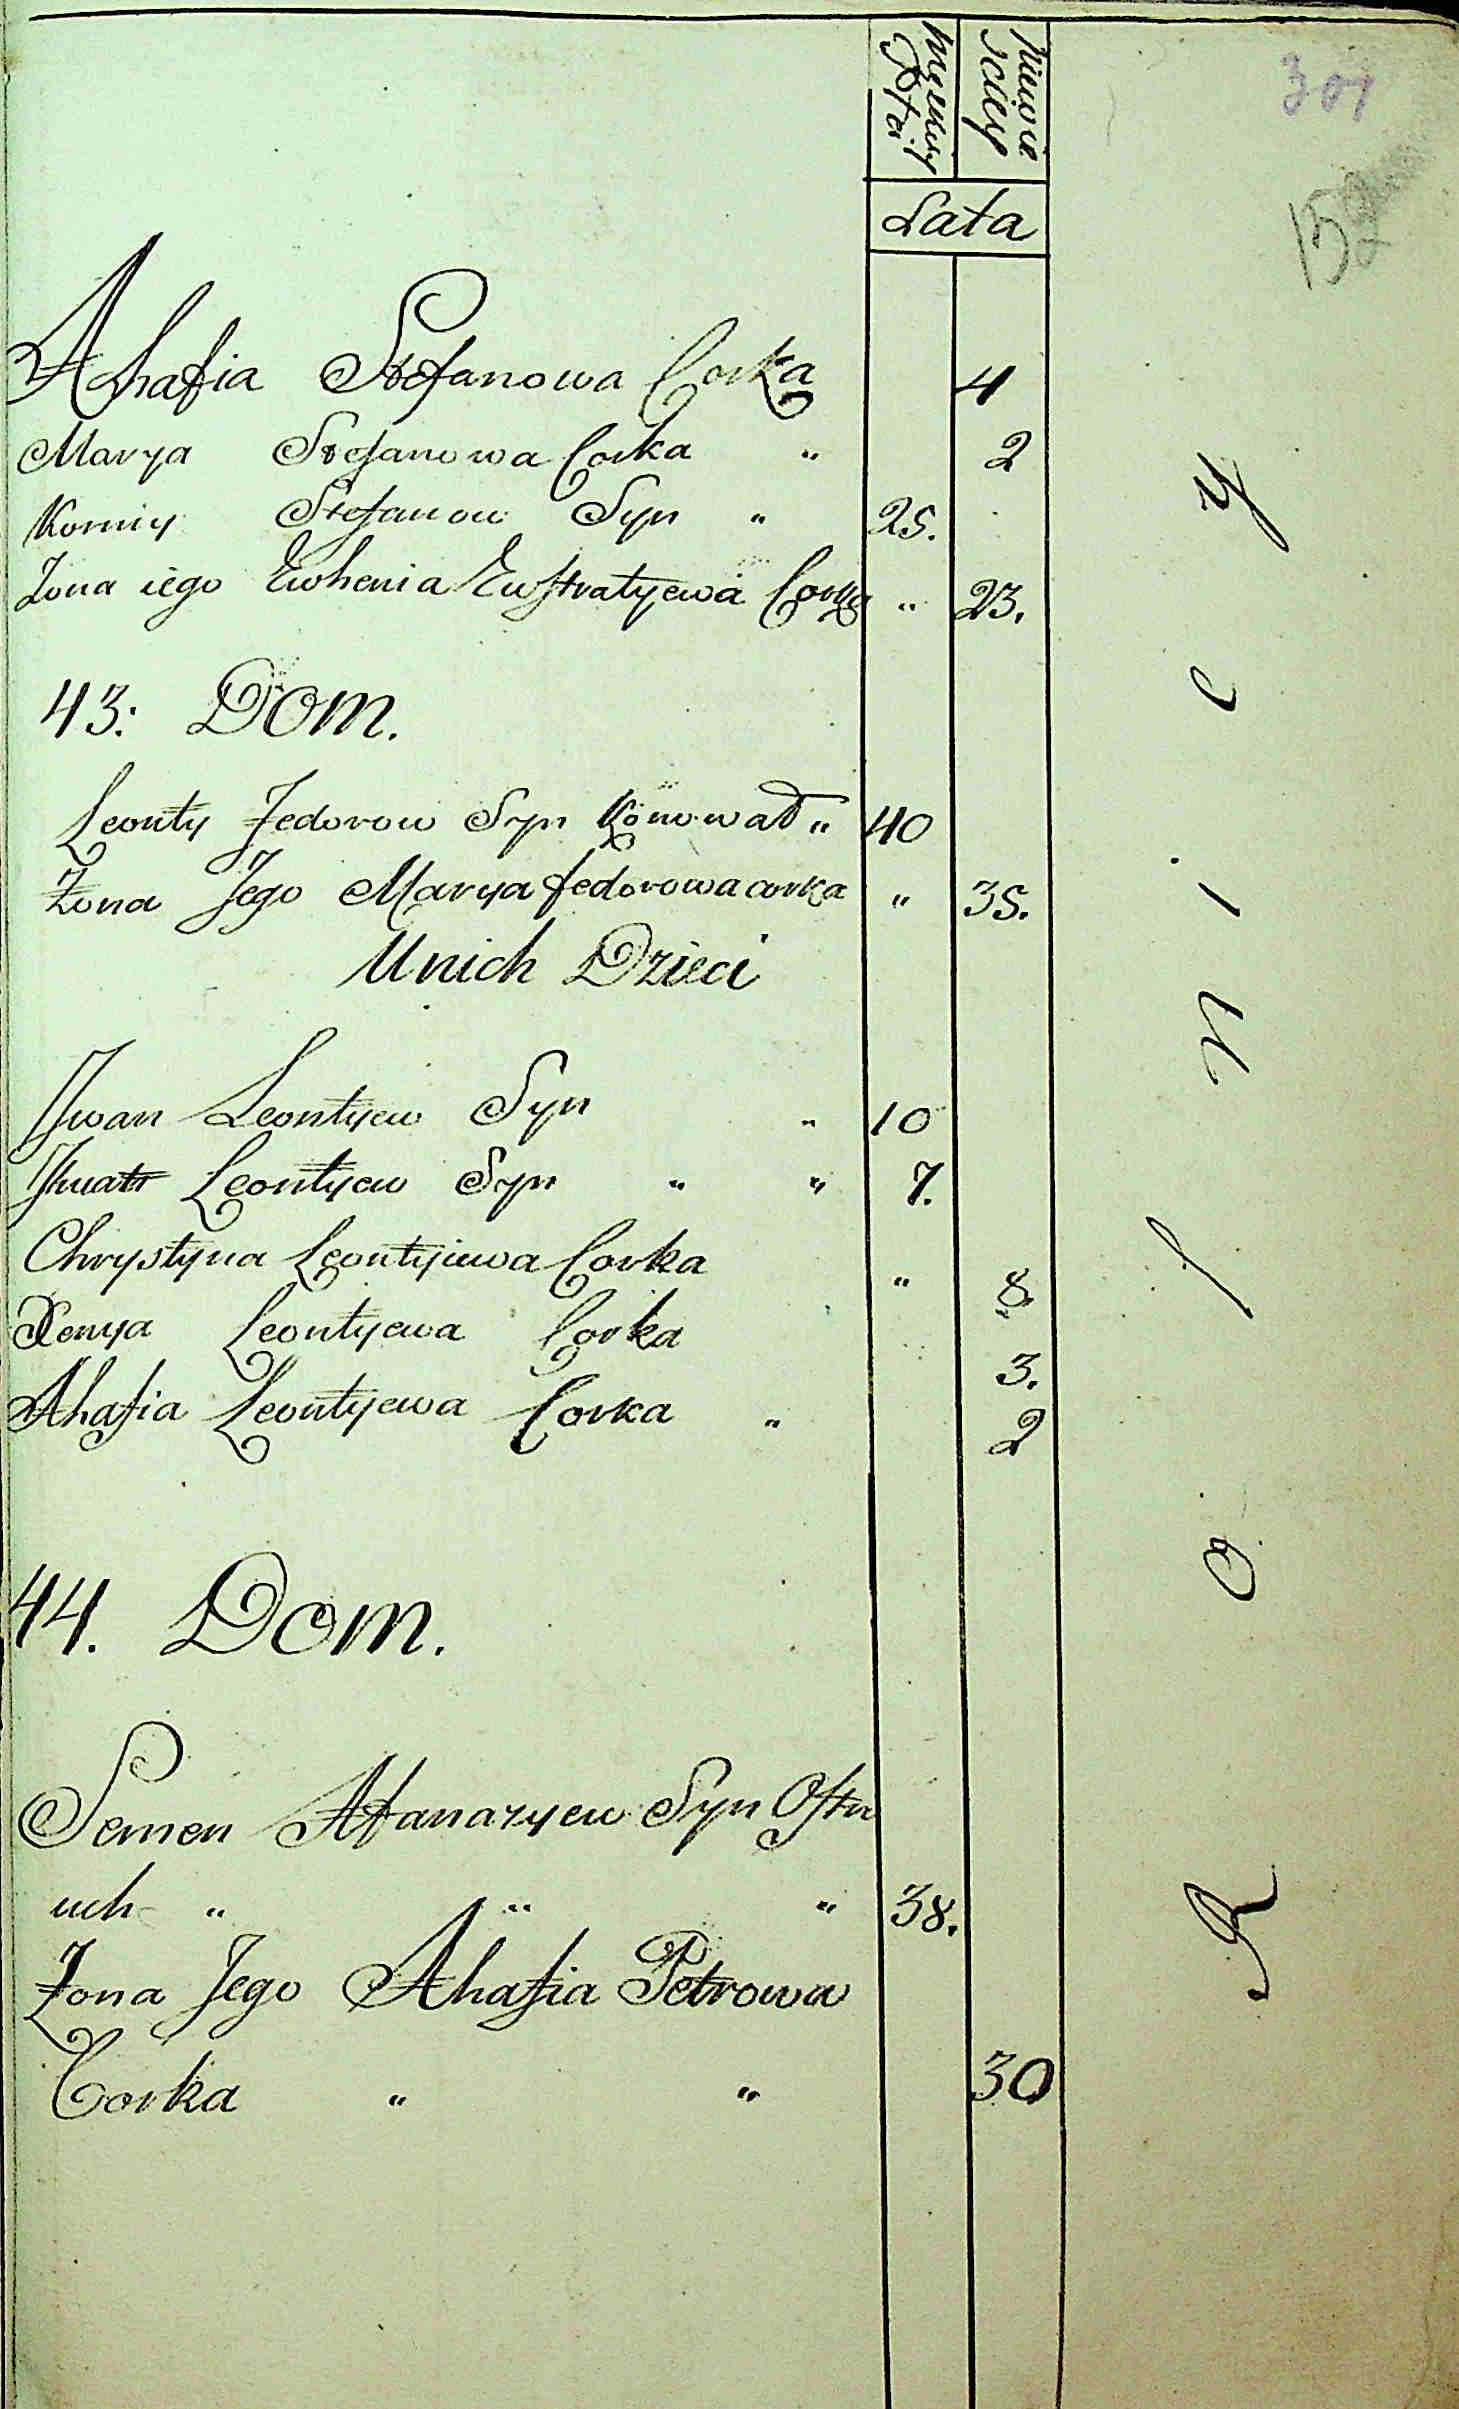 301
152
Męskiey Płci
Niewie
sciey
Lata
Ahafia Stefanowa Corka 4
Marya Stefanowa Corka „ 2
Korniy Stefanow Syn „ 25.
Zona iego Ewhenia Ewstratyewa Corka „ 23.
43. Dom.
Leonty Fedorow Syn Konował „ 40
Żona Jego Marya fedorowa corka „ 35.
Unich Dzieci
Jwan Leontyew Syn „ 10
Jhnatt Leontyew Syn „ „ 7.
Chrystyna Leontyiewa Corka „ 8.
Xenya Leontyewa Corka 3.
Ahafia Leontyewa Corka „ 2
44. Dom.
Semen Afanazyew Syn Ostn
uch „ „ „ 38.
Żona Jego Ahafia Petrowa
Corka „ „ 30
Rolnicy